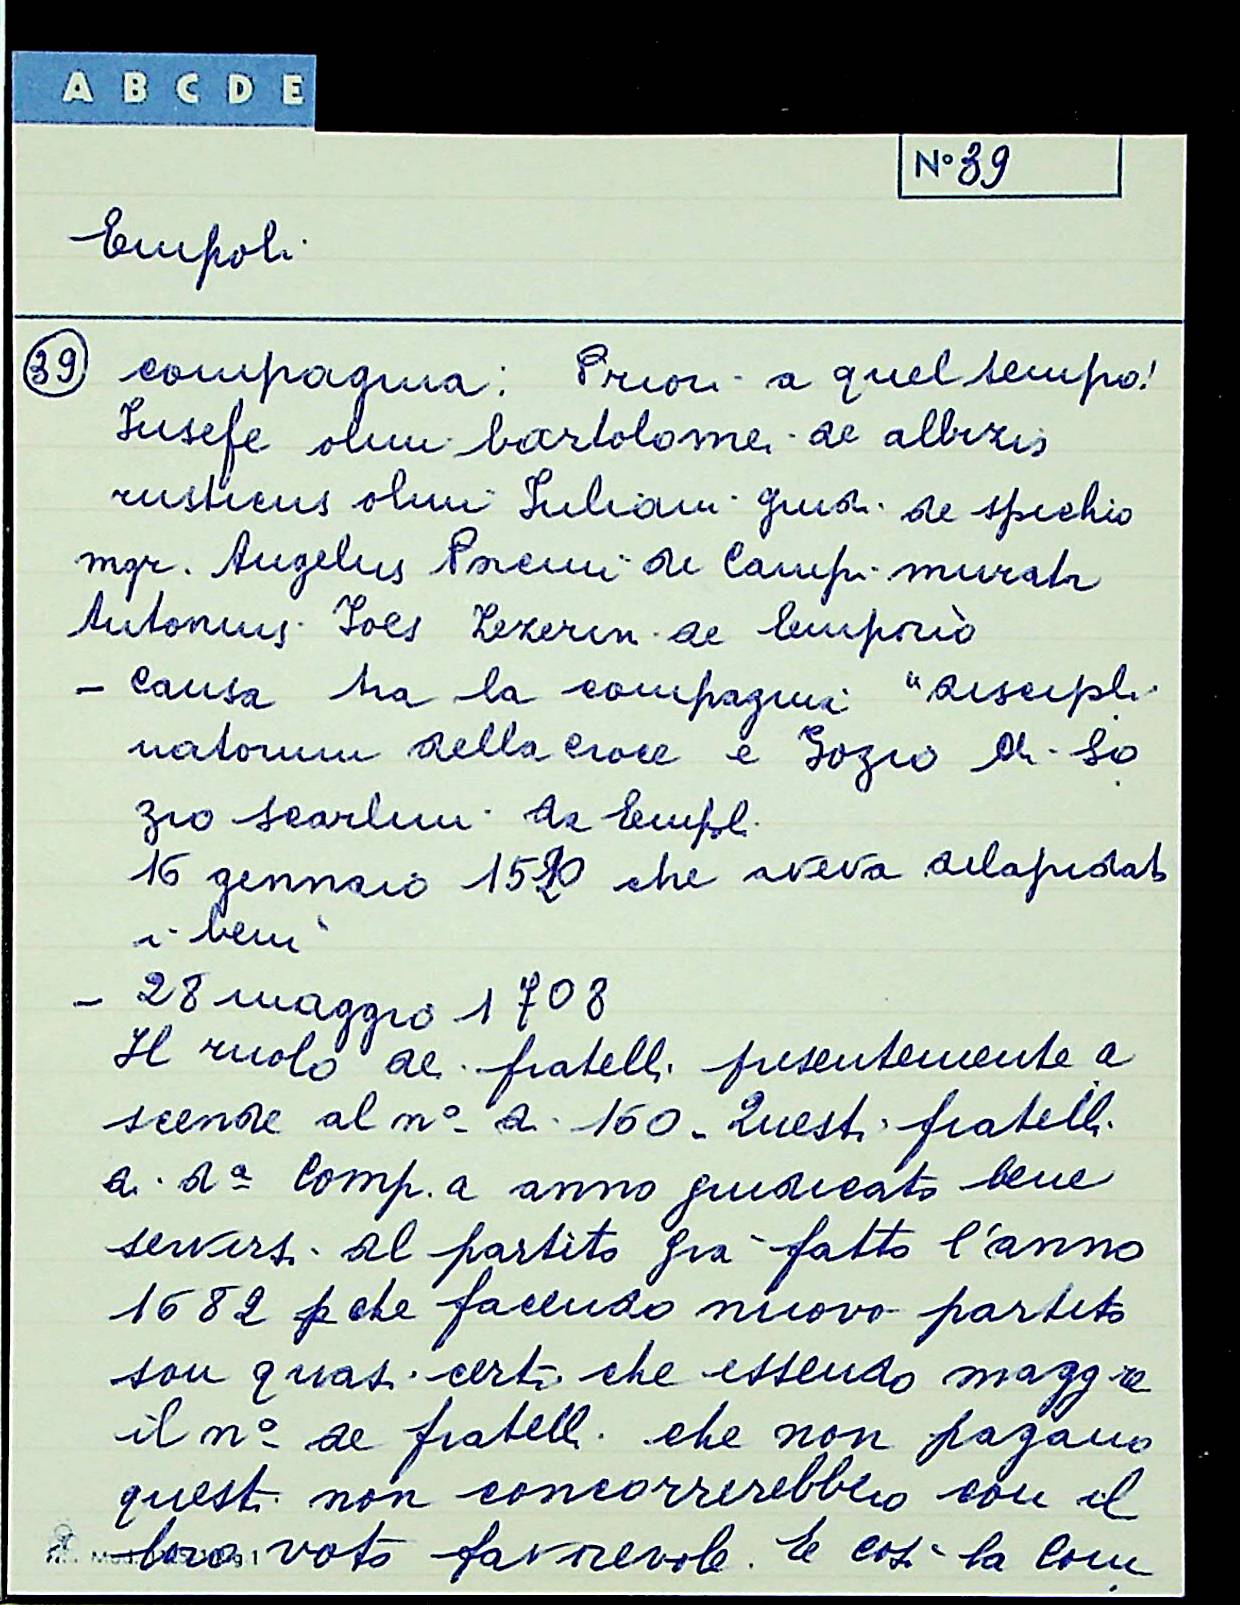 A B C D E
N° 39
Empoli
39 compagnia: Priori a quel tempo!
Iusefe olim bartolomei de albizis
rusticus olim Iuliani guidi de spichio
mgr. Angelus de Campi murati
Antonius Joes de Emporio
- Causa tra la compagnia "discipli
natorum della croce e Gozio di Go
zio scarlini da Empoli
16 gennaio 1520 che aveva delapidato
i beni
- 28 maggio 1708
Il ruolo dei fratelli presentemente a
scende al n° di 160 - Questi fratelli
di dª Comp.a anno giudicato bene
servirsi del partito già fatto l'anno
1682 p che facendo nuovo partito
son quasi certi che essendo magg re
il n° de fratelli che non pagano
questi non concorrerebbero con il
loro voto favorevole. E così la Com